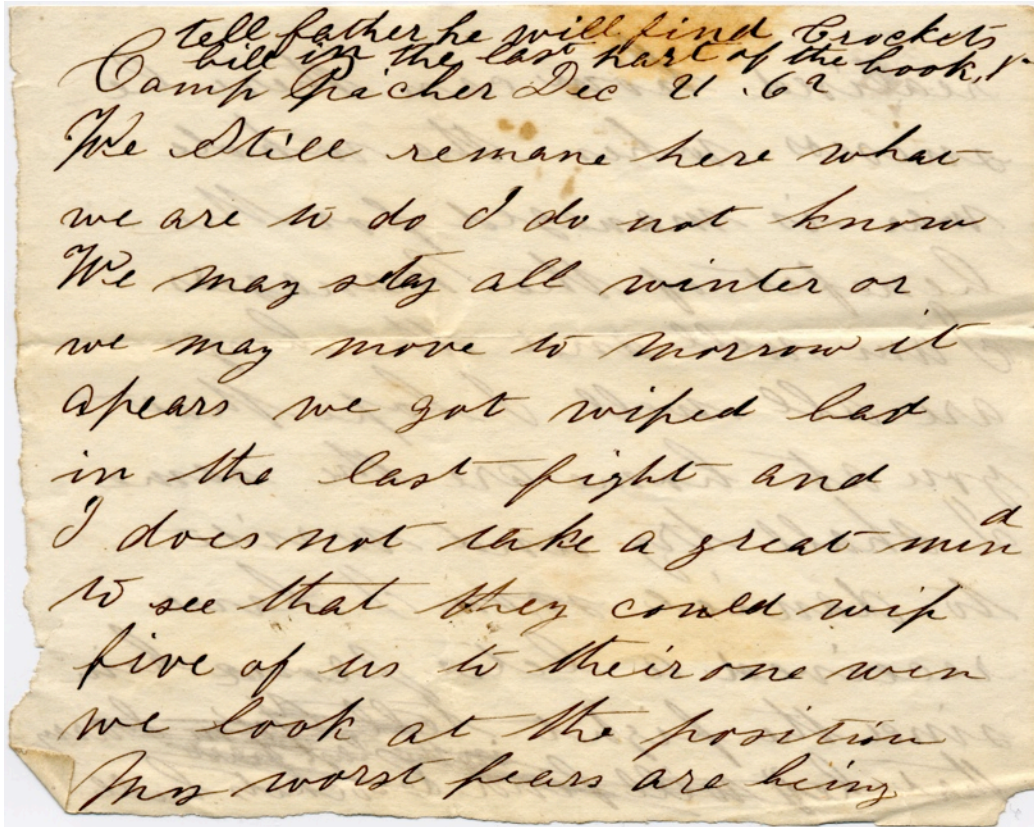 tell father he will find Crockets
bill in the last part of the book,
Camp Picher Dec 21 . 62
We Still remane here what
we are to do I do not know
We may stay all winter or
we may move to morrow it
apears we got wiped bad
in the last fight and
I does not take a great mind
to see that they could wip
five of us to their one wen
we look at the position
My worst fears are being